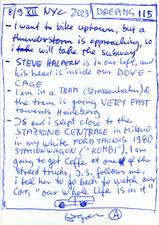 8/9 XII NYC 2023 DREAMS 115
- I want to bike uptown, but a
thunderstorm is approaching, so
I take will take the subway
- STEVE HALPERN is in our loft, and
his head is inside our DOVE-
CAGE
- I am in a TRAM (Strassenbahn) &
the tram is going VERY FAST
towards Heidelberg
- JS and I slept close to the
STAZIONE CENTRALE in Milano
in my white FORD TAUNUS 1980
STATIONWAGON ("KOMBI"), I am
going to get coffee at one of the
street trucks, J.S. follows me,
I tell her to go back to watch our
car, "our whole life is in it"
A